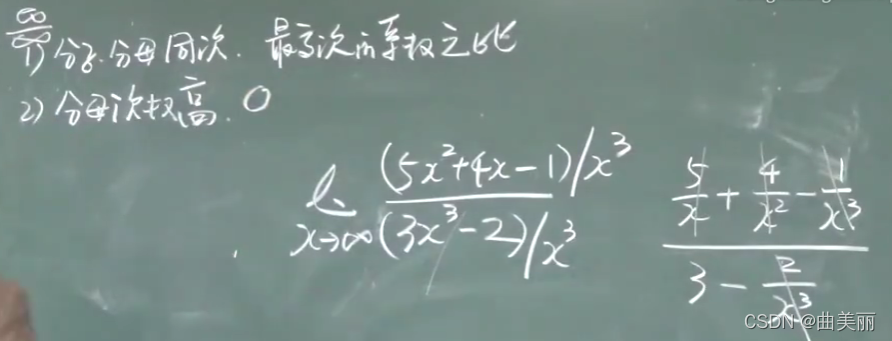 ∞/∞
1) 分子.分母同次. 最高次的系数之比
2) 分母次数高. 0
lim x→∞ (5x²+4x-1)/x³ / (3x³-2)/x³
5/x + 4/x² - 1/x³ / 3 - 2/x³
CSDN @曲美丽